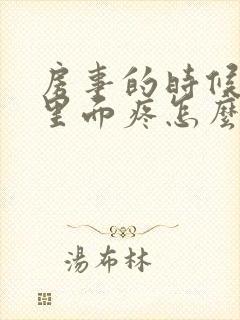 房事的時候
里面疼怎麼
湯布林